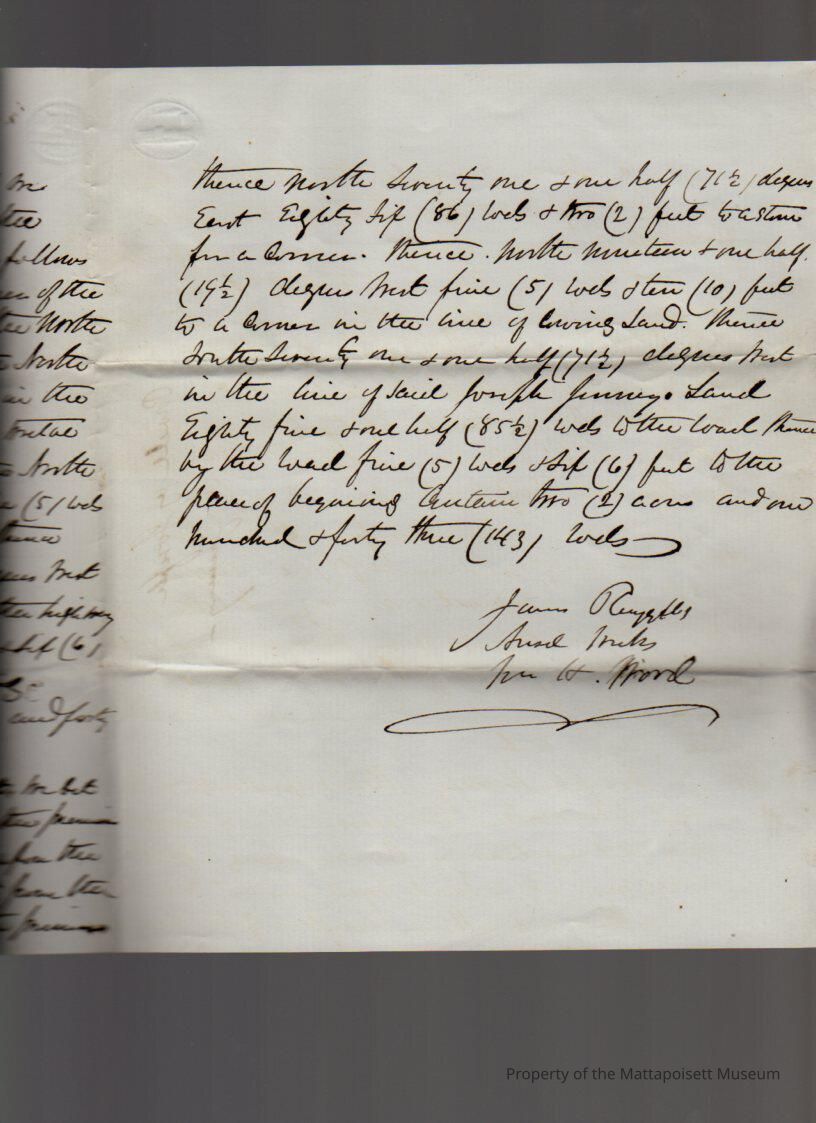 one
the
follows
of the
the North
North
in the
twelve
North
(5) rods
thence
West
the highway
& Six (6)
and forty
the
from the
thence North Seventy one & one half (71½) degrees
East Eighty Six (86) rods & two (2) feet to a stone
for a Corner. thence. North nineteen & one half.
(19½) degrees West five (5) rods & ten (10) feet
to a Corner in the line of Cowing Land. thence
South Seventy one & one half (71½) degrees West
in the line of said Joseph Land
Eighty five & one half (85½) rods to the road thence
by the road five (5) rods & Six (6) feet to the
place of begining Contain two (2) acres and one
hundred & forty three (143) rods
James Ruggles
Ansel Weeks
Wm H. Wood
Property of the Mattapoisett Museum